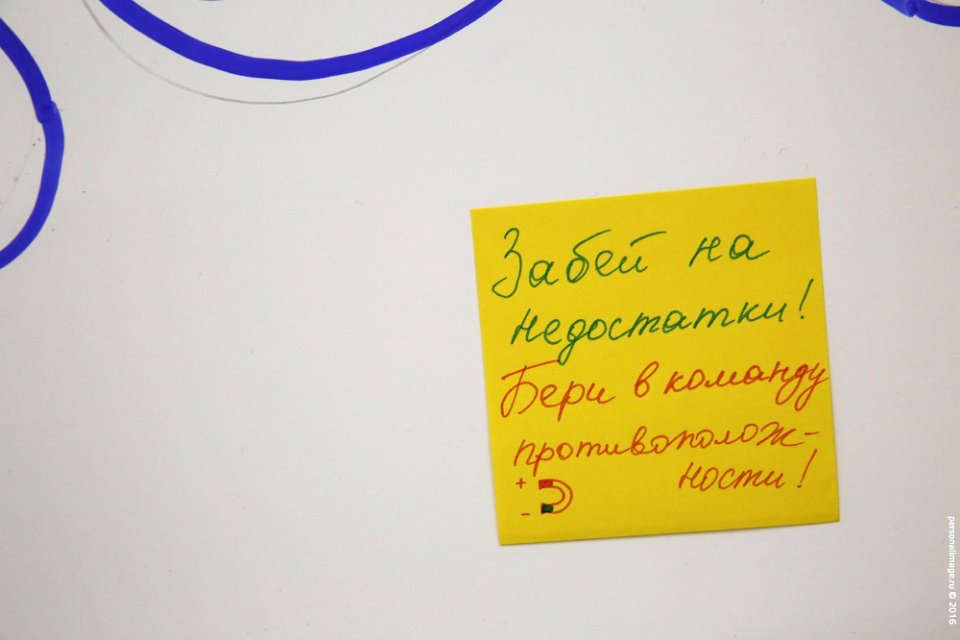 Забей на
недостатки!
Бери в команду
противополож-
ности!
+
-
personalimage.ru © 2016